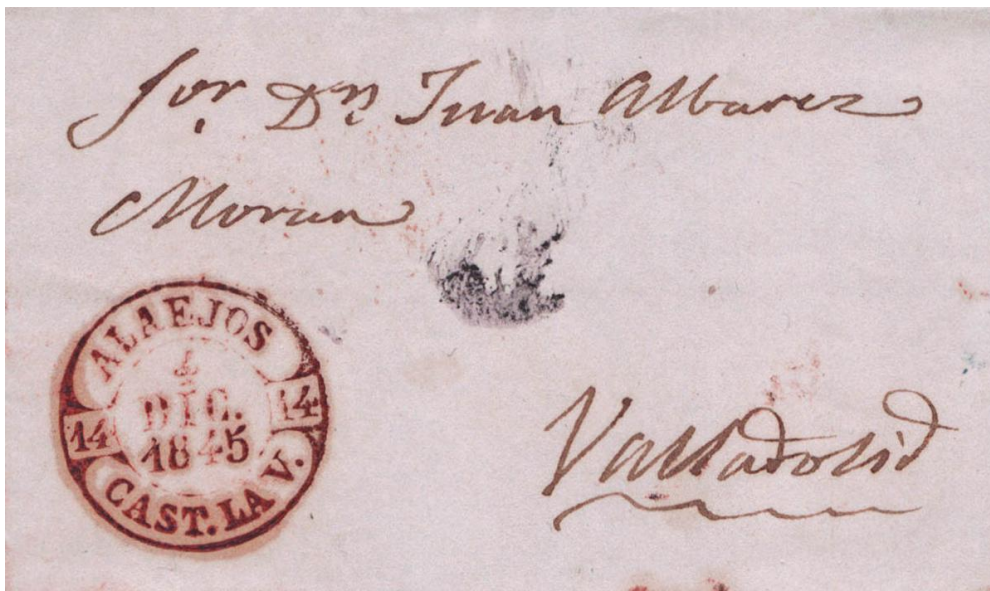 Sor. Dn. Juan Albarez
Moran
ALAEJOS
4
DIC.
1845
14
14
CAST. LA V.
Valladolid